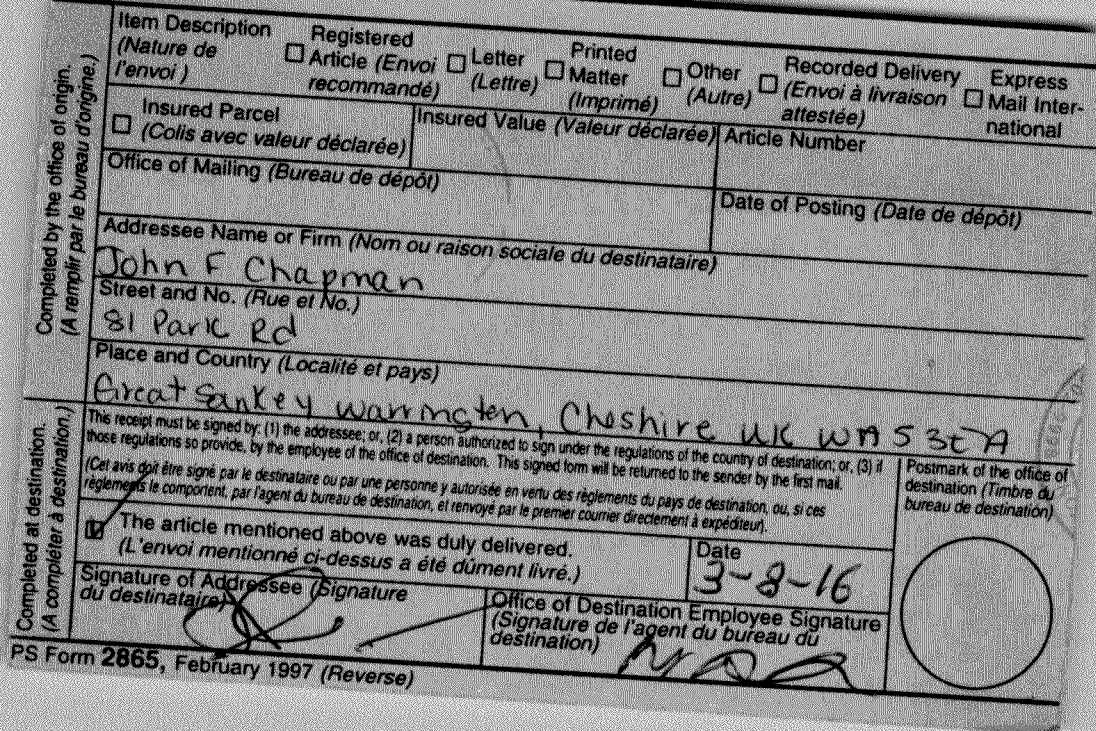 Completed by the office of origin.
(A remplir par le bureau d'origine.)
Item Description
(Nature de
l'envoi )
Registered
Article (Envoi
recommandé)
Letter
(Lettre)
Printed
Matter
(Imprimé)
Other
(Autre)
Recorded Delivery
(Envoi à livraison
attestée)
Express
Mail Inter-
national
Insured Parcel
(Colis avec valeur déclarée)
Insured Value (Valeur déclarée)
Article Number
Office of Mailing (Bureau de dépôt)
Date of Posting (Date de dépôt)
Addressee Name or Firm (Nom ou raison sociale du destinataire)
John F Chapman
Street and No. (Rue et No.)
81 Park Rd
Place and Country (Localité et pays)
Great Sankey Warrington, Cheshire UK WA5 3EA
Completed at destination.
(A compléter à destination.)
This receipt must be signed by: (1) the addressee; or, (2) a person authorized to sign under the regulations of the country of destination; or, (3) if
those regulations so provide, by the employee of the office of destination. This signed form will be returned to the sender by the first mail.
(Cet avis doit être signé par le destinataire ou par une personne y autorisée en vertu des règlements du pays de destination, ou, si ces
règlements le comportent, par l'agent du bureau de destination, et renvoyé par le premier courrier directement à expéditeur).
Postmark of the office of
destination (Timbre du
bureau de destination)
The article mentioned above was duly delivered.
(L'envoi mentionné ci-dessus a été dûment livré.)
Date
3-8-16
Signature of Addressee (Signature
du destinataire)
Office of Destination Employee Signature
(Signature de l'agent du bureau du
destination)
PS Form 2865, February 1997 (Reverse)